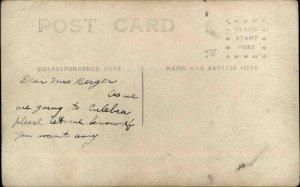 POST CARD
AZO
PLACE
STAMP
HERE
AZO
CORRESPONDENCE HERE
NAME AND ADDRESS HERE
Dear Mrs Berger
As we
are going to Culebra
please let me know if
you want any